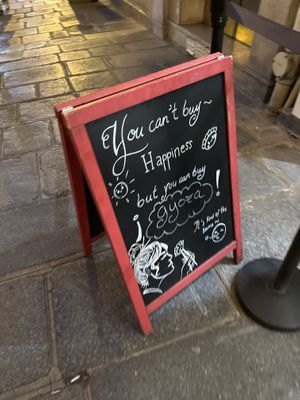 You can't buy
Happiness
but you can buy
gyoza!
It's kind of the
same